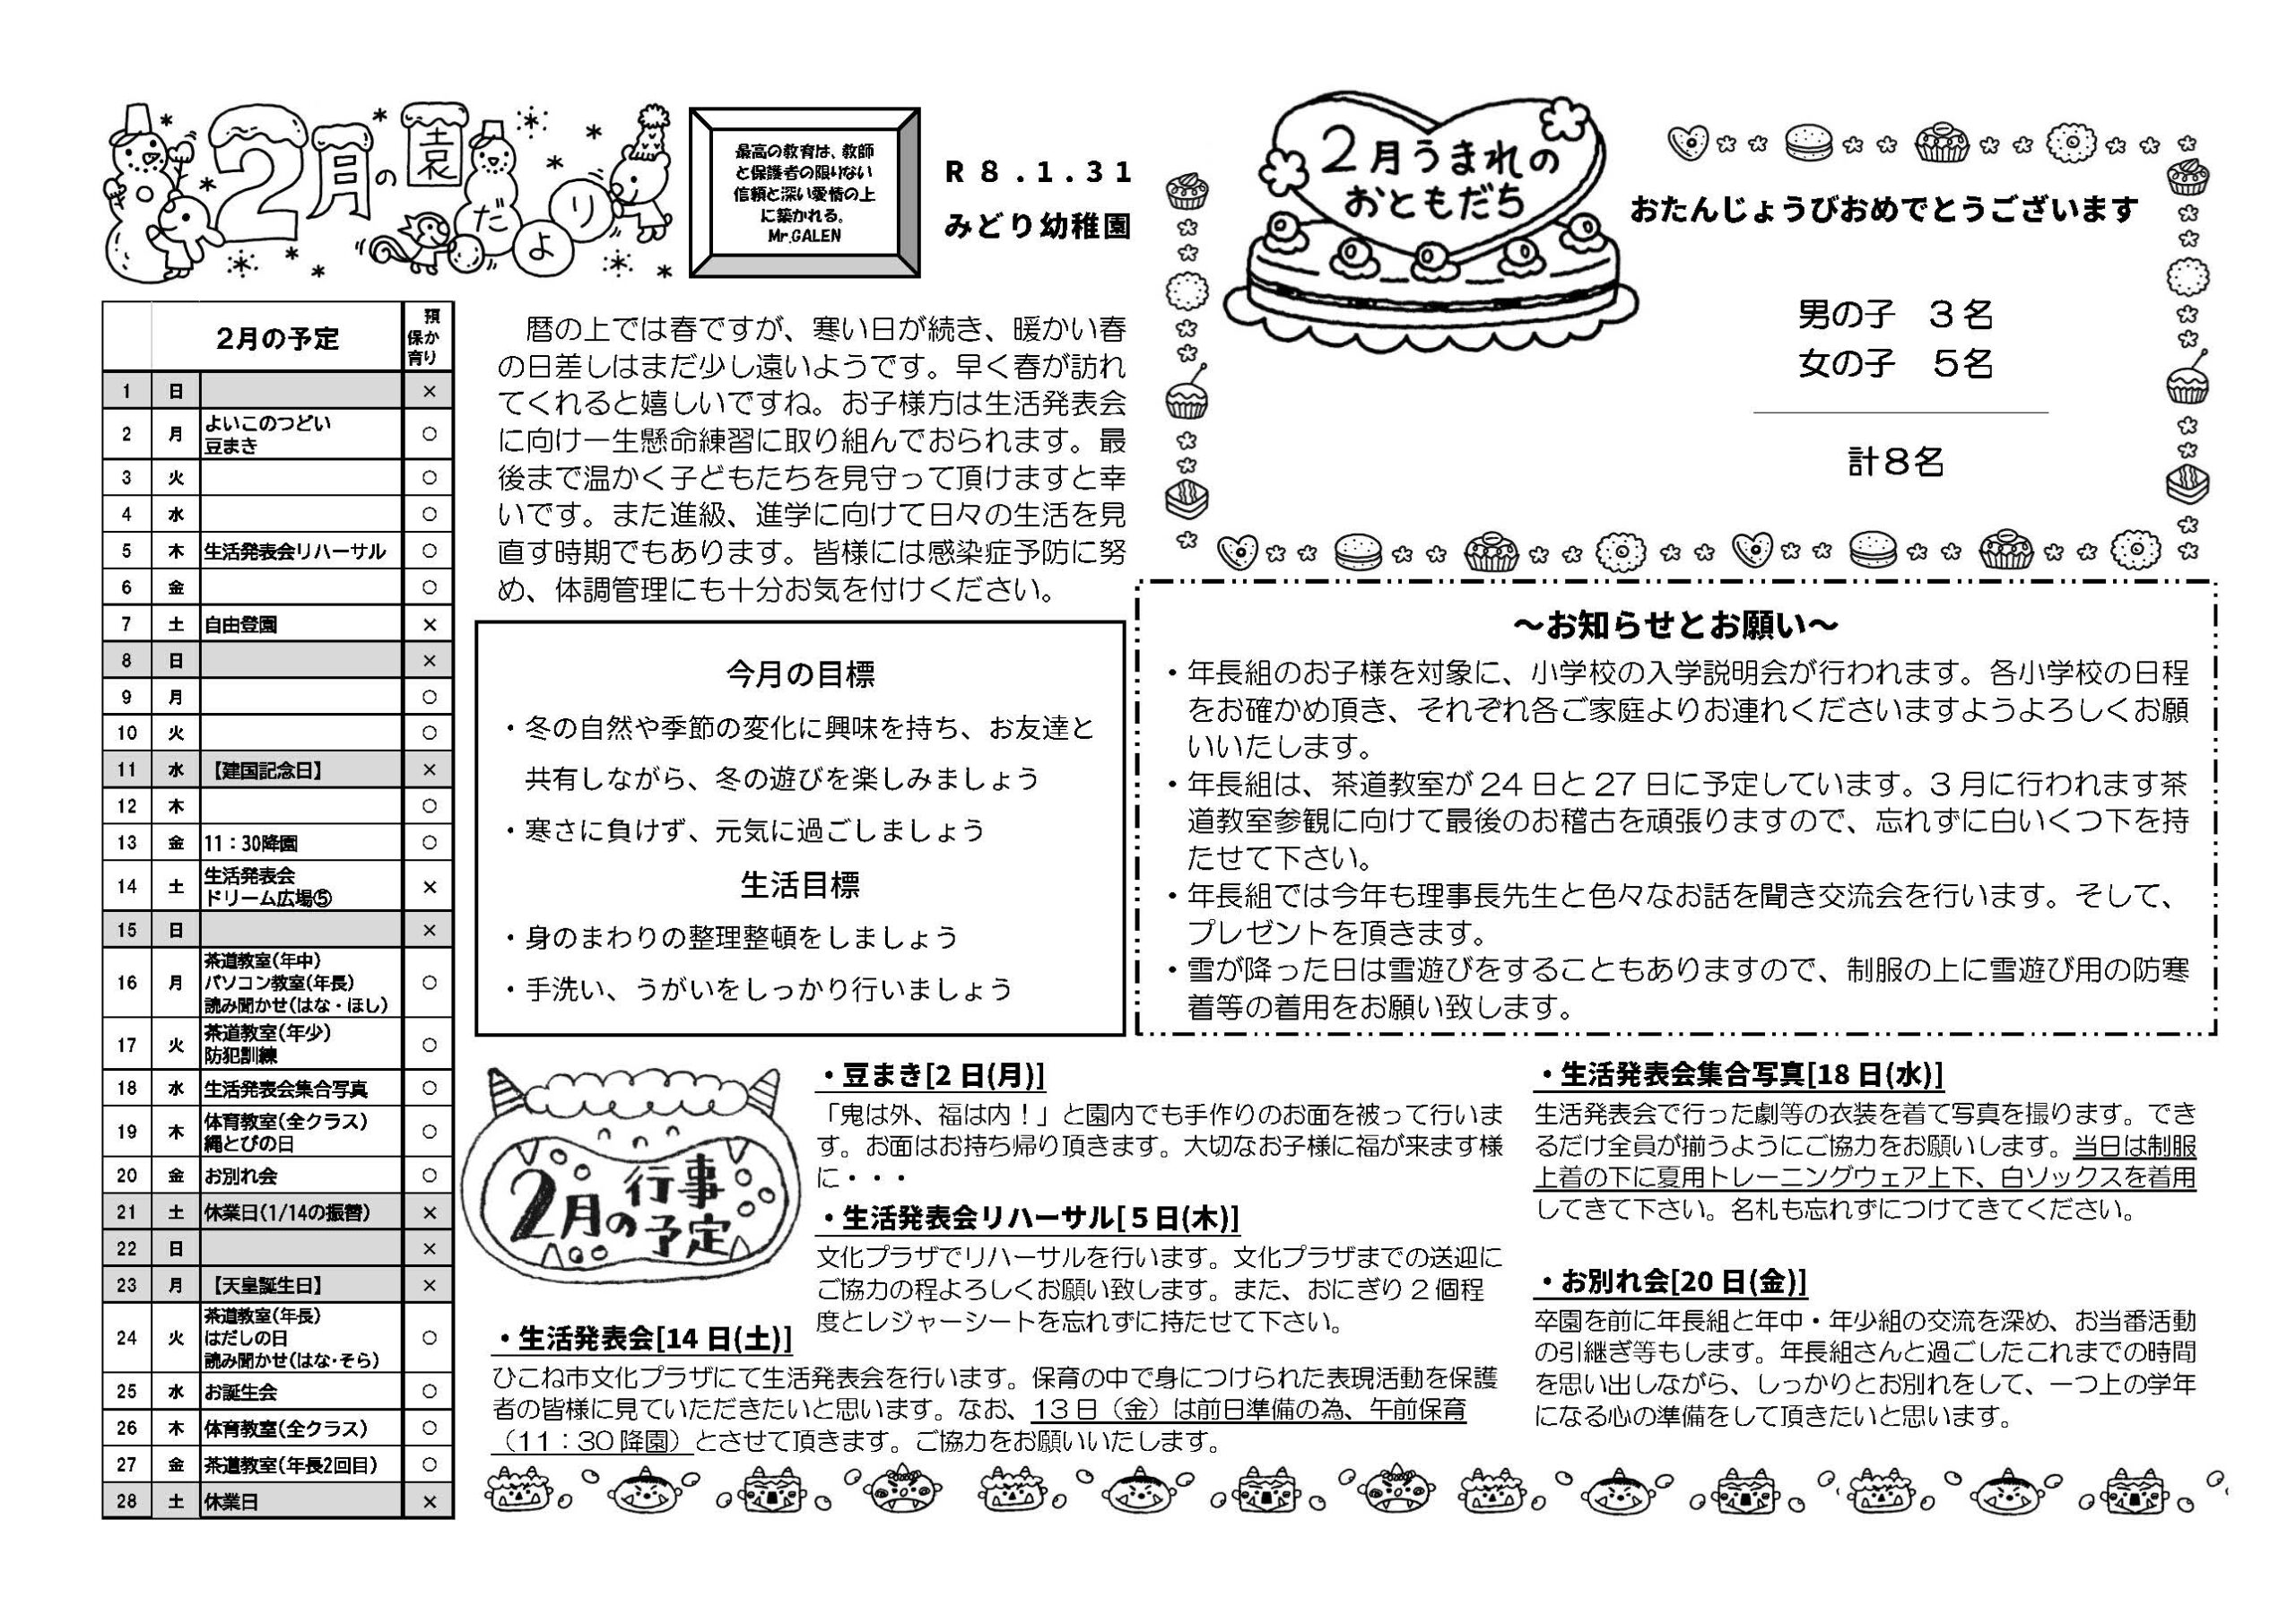 2月の園だより
最高の教育は、教師
と保護者の限りない
信頼と深い愛情の上
に築かれる。
Mr.GALEN
R８.１.３１
みどり幼稚園
2月の予定 預かり保育
1 日 ×
2 月 よいこのつどい 豆まき ○
3 火 ○
4 水 ○
5 木 生活発表会リハーサル ○
6 金 ○
7 土 自由登園 ×
8 日 ×
9 月 ○
10 火 ○
11 水 【建国記念日】 ×
12 木 ○
13 金 11：30降園 ○
14 土 生活発表会 ドリーム広場⑤ ×
15 日 ×
16 月 茶道教室(年中) パソコン教室(年長) 読み聞かせ(はな・ほし) ○
17 火 茶道教室(年少) 防犯訓練 ○
18 水 生活発表会集合写真 ○
19 木 体育教室(全クラス) 縄とびの日 ○
20 金 お別れ会 ○
21 土 休業日(1/14の振替) ×
22 日 ×
23 月 【天皇誕生日】 ×
24 火 茶道教室(年長) はだしの日 読み聞かせ(はな・そら) ○
25 水 お誕生会 ○
26 木 体育教室(全クラス) ○
27 金 茶道教室(年長2回目) ○
28 土 休業日 ×
暦の上では春ですが、寒い日が続き、暖かい春
の日差しはまだ少し遠いようです。早く春が訪れ
てくれると嬉しいですね。お子様方は生活発表会
に向け一生懸命練習に取り組んでおられます。最
後まで温かく子どもたちを見守って頂けますと幸
いです。また進級、進学に向けて日々の生活を見
直す時期でもあります。皆様には感染症予防に努
め、体調管理にも十分お気を付けください。
今月の目標
・冬の自然や季節の変化に興味を持ち、お友達と
共有しながら、冬の遊びを楽しみましょう
・寒さに負けず、元気に過ごしましょう
生活目標
・身のまわりの整理整頓をしましょう
・手洗い、うがいをしっかり行いましょう
2月うまれの
おともだち
おたんじょうびおめでとうございます
男の子　３名
女の子　５名
計８名
～お知らせとお願い～
・年長組のお子様を対象に、小学校の入学説明会が行われます。各小学校の日程
をお確かめ頂き、それぞれ各ご家庭よりお連れくださいますようよろしくお願
いいたします。
・年長組は、茶道教室が 24 日と 27 日に予定しています。3 月に行われます茶
道教室参観に向けて最後のお稽古を頑張りますので、忘れずに白いくつ下を持
たせて下さい。
・年長組では今年も理事長先生と色々なお話を聞き交流会を行います。そして、
プレゼントを頂きます。
・雪が降った日は雪遊びをすることもありますので、制服の上に雪遊び用の防寒
着等の着用をお願い致します。
2月の行事予定
・豆まき[2 日(月)]
「鬼は外、福は内！」と園内でも手作りのお面を被って行いま
す。お面はお持ち帰り頂きます。大切なお子様に福が来ます様
に・・・
・生活発表会リハーサル[５日(木)]
文化プラザでリハーサルを行います。文化プラザまでの送迎に
ご協力の程よろしくお願い致します。また、おにぎり 2 個程
度とレジャーシートを忘れずに持たせて下さい。
・生活発表会[14 日(土)]
ひこね市文化プラザにて生活発表会を行います。保育の中で身につけられた表現活動を保護
者の皆様に見ていただきたいと思います。なお、13 日（金）は前日準備の為、午前保育
（11：30 降園）とさせて頂きます。ご協力をお願いいたします。
・生活発表会集合写真[18 日(水)]
生活発表会で行った劇等の衣装を着て写真を撮ります。でき
るだけ全員が揃うようにご協力をお願いします。当日は制服
上着の下に夏用トレーニングウェア上下、白ソックスを着用
してきて下さい。名札も忘れずにつけてきてください。
・お別れ会[20 日(金)]
卒園を前に年長組と年中・年少組の交流を深め、お当番活動
の引継ぎ等もします。年長組さんと過ごしたこれまでの時間
を思い出しながら、しっかりとお別れをして、一つ上の学年
になる心の準備をして頂きたいと思います。